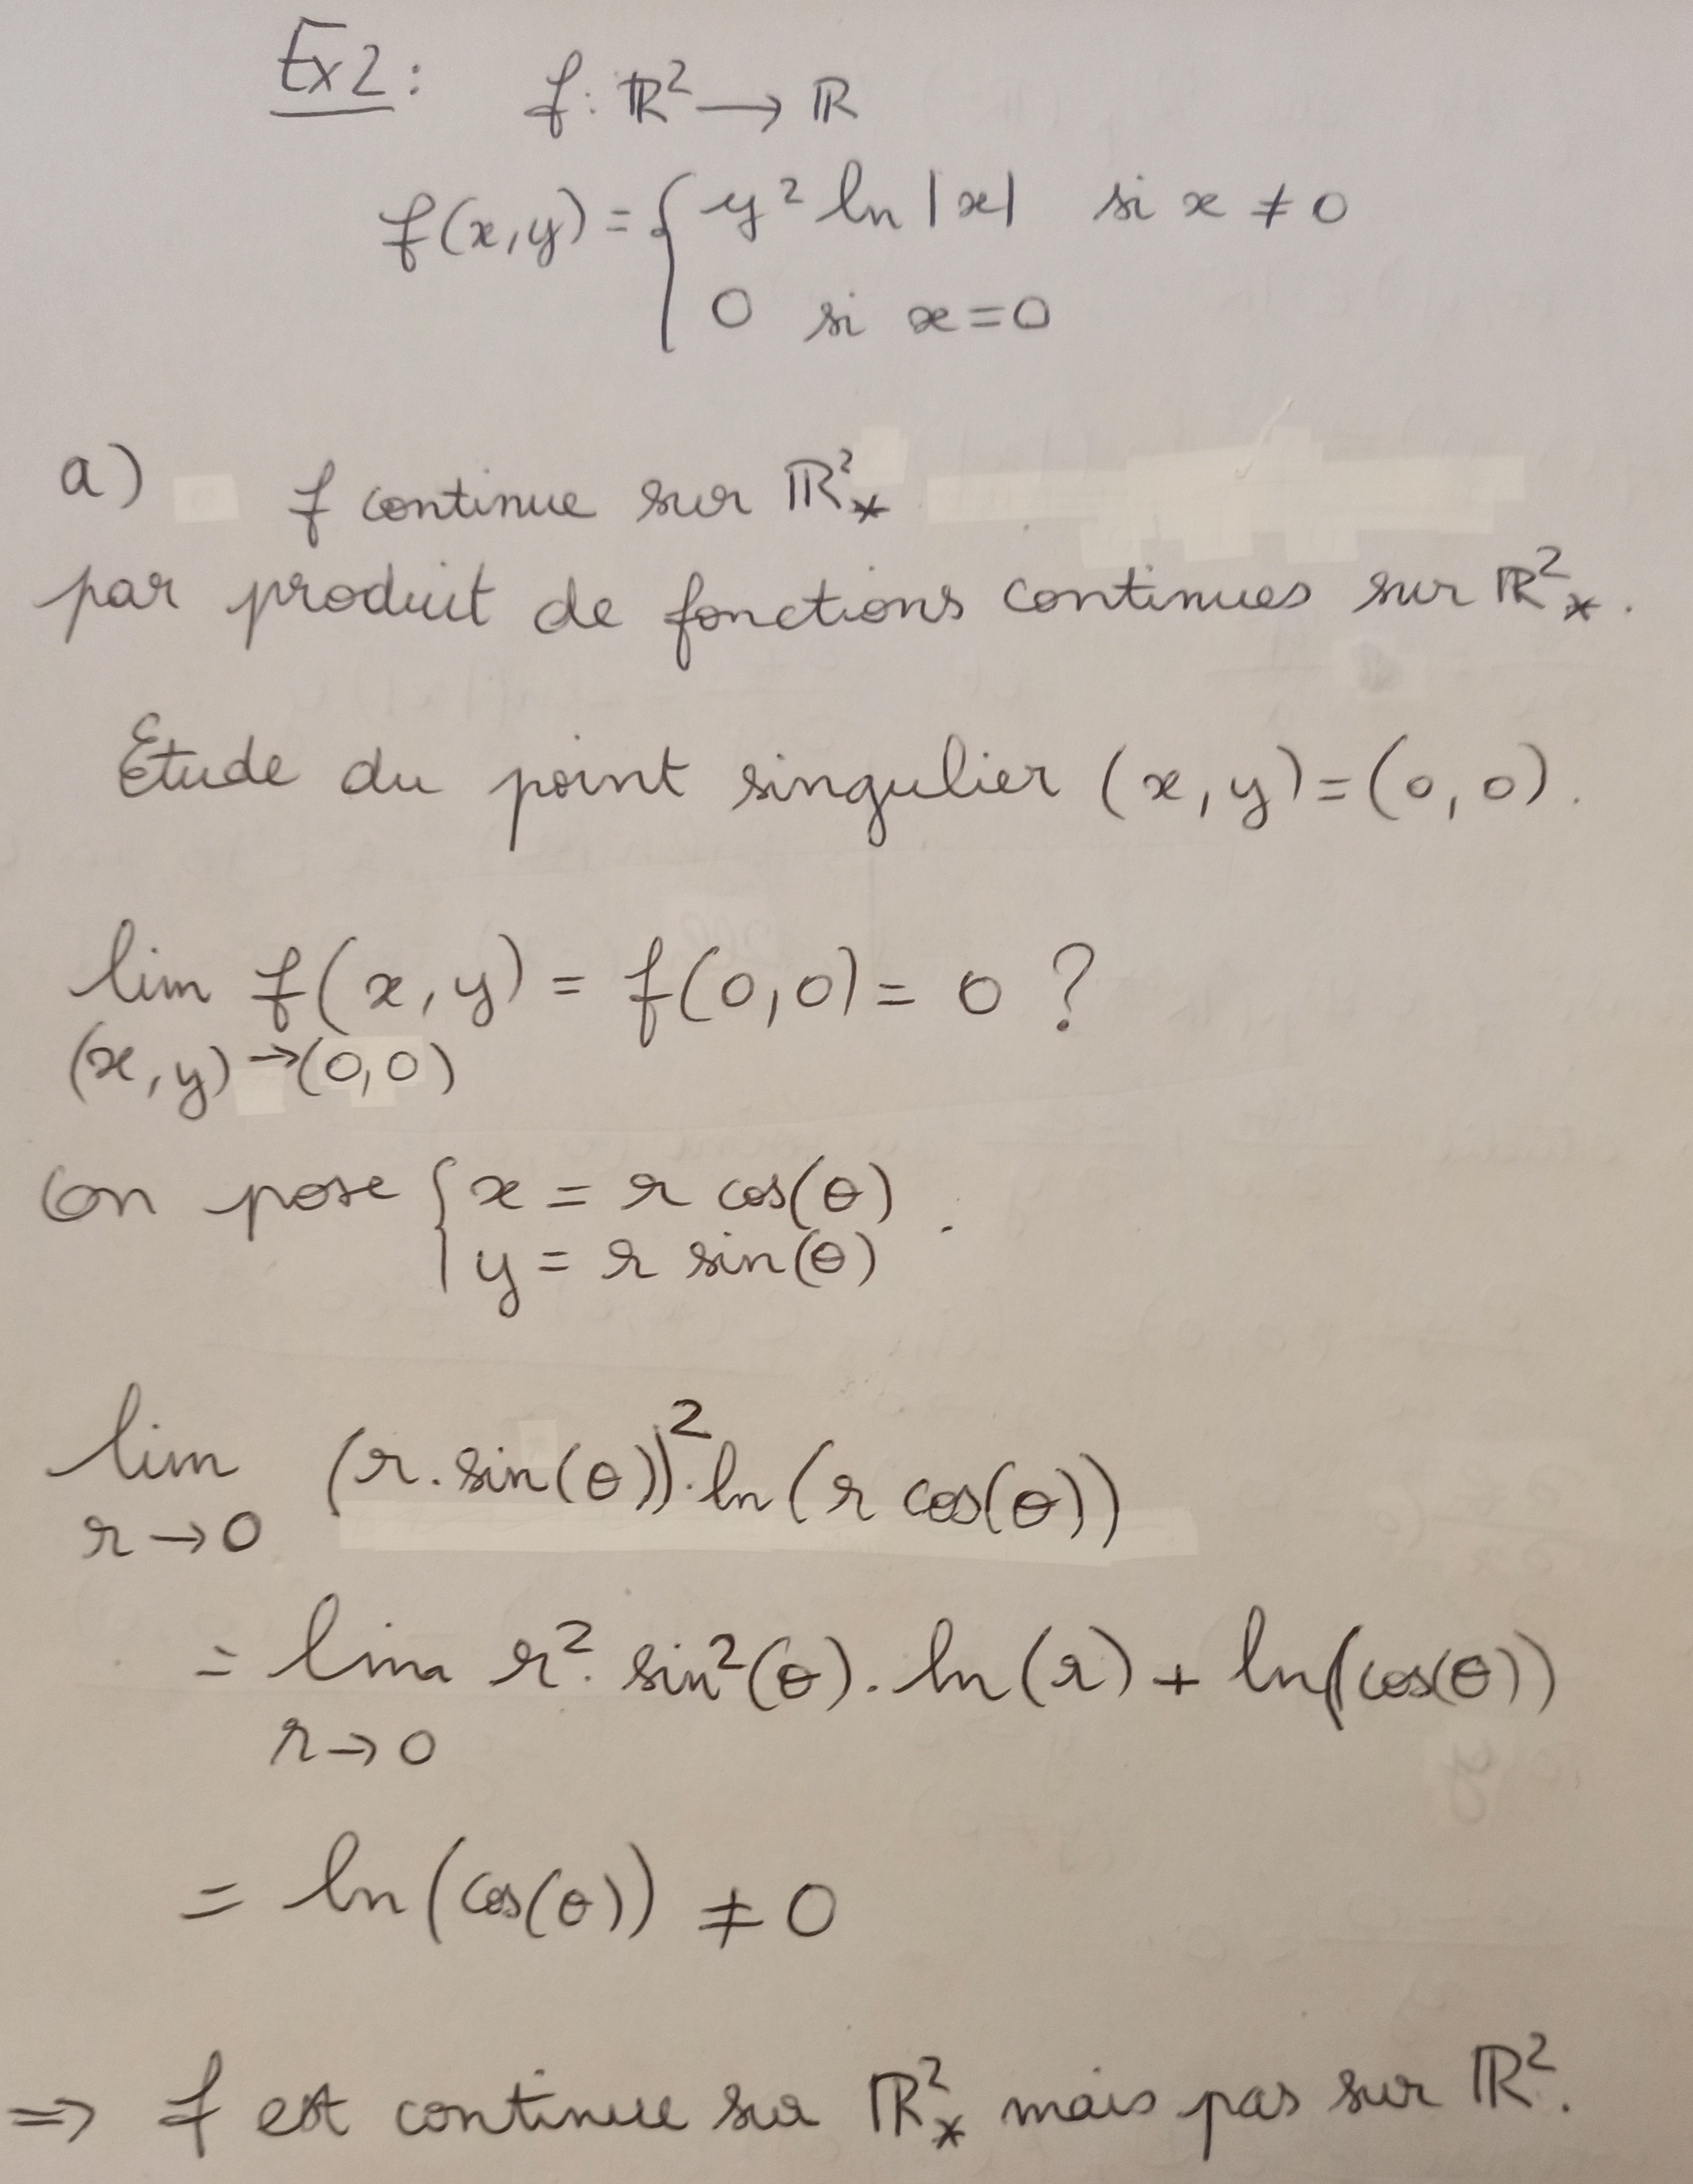 Ex2 : f : ℝ² → ℝ
f(x,y) = { y² ln |x| si x ≠ 0
0 si x = 0
a) f continue sur ℝ²*
par produit de fonctions continues sur ℝ²*.
Etude du point singulier (x,y) = (0,0).
lim f(x,y) = f(0,0) = 0 ?
(x,y) → (0,0)
On pose { x = r cos(θ)
y = r sin(θ) .
lim (r. sin(θ))². ln(r cos(θ))
r → 0
= lim r². sin²(θ). ln(r) + ln(cos(θ))
r → 0
= ln(cos(θ)) ≠ 0
⇒ f est continue sur ℝ²* mais pas sur ℝ².